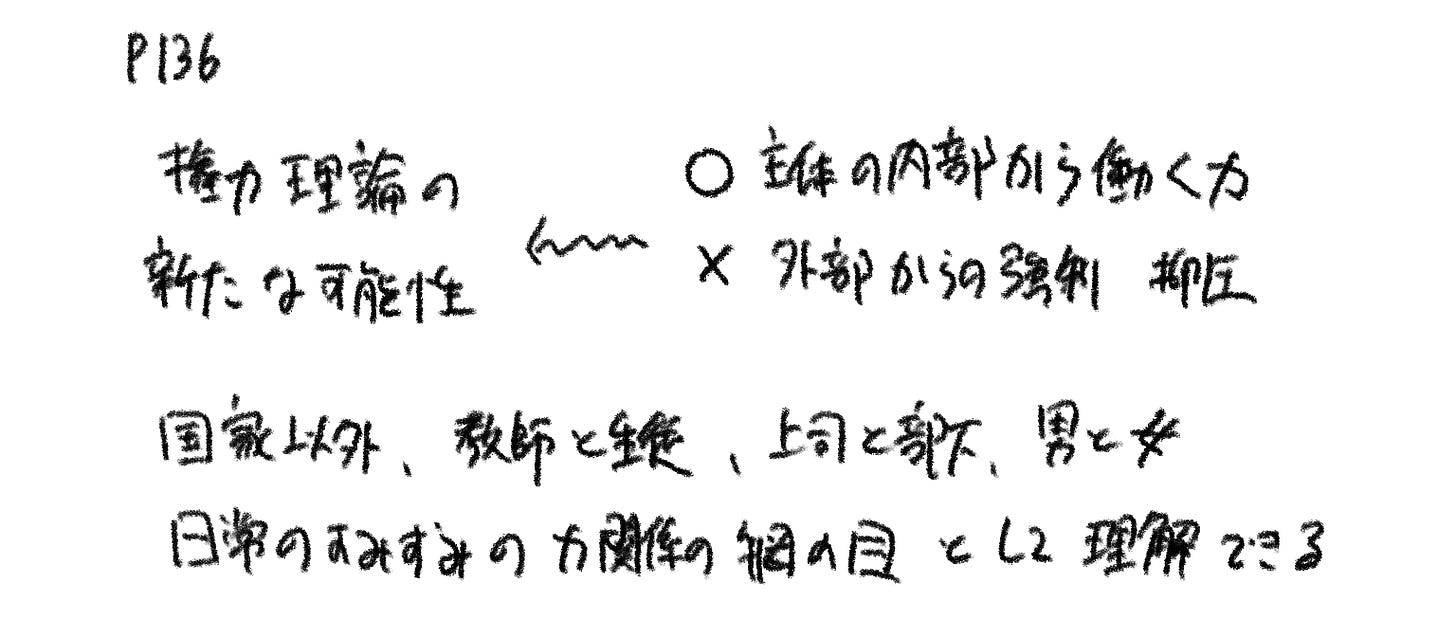 P136
権力理論の
新たな可能性
○主体の内部から働く力
×外部からの強制 抑圧
国家以外、教師と生徒、上司と部下、男と女
日常のすみずみの力関係の網の目として理解できる